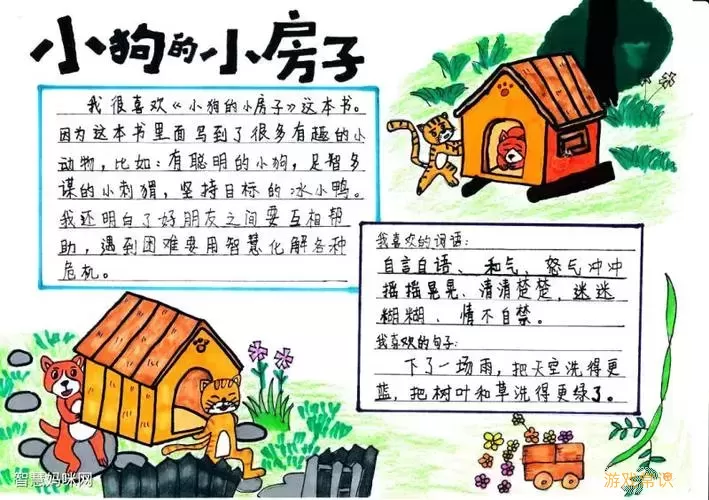 小狗的小房子
我很喜欢《小狗的小房子》这本书。
因为这本书里面写到了很多有趣的小
动物,比如:有聪明的小狗,足智多
谋的小刺猬,坚持目标的冰小鸭。
我还明白了好朋友之间要互相帮
助,遇到困难要用智慧化解各种
危机。
我喜欢的词语:
自言自语、和气、怒气冲冲
摇摇晃晃、清清楚楚、迷迷
糊糊、情不自禁。
我喜欢的句子:
下了一场雨,把天空洗得更
蓝,把树叶和草洗得更绿了。
智慧妈咪网
游戏常识